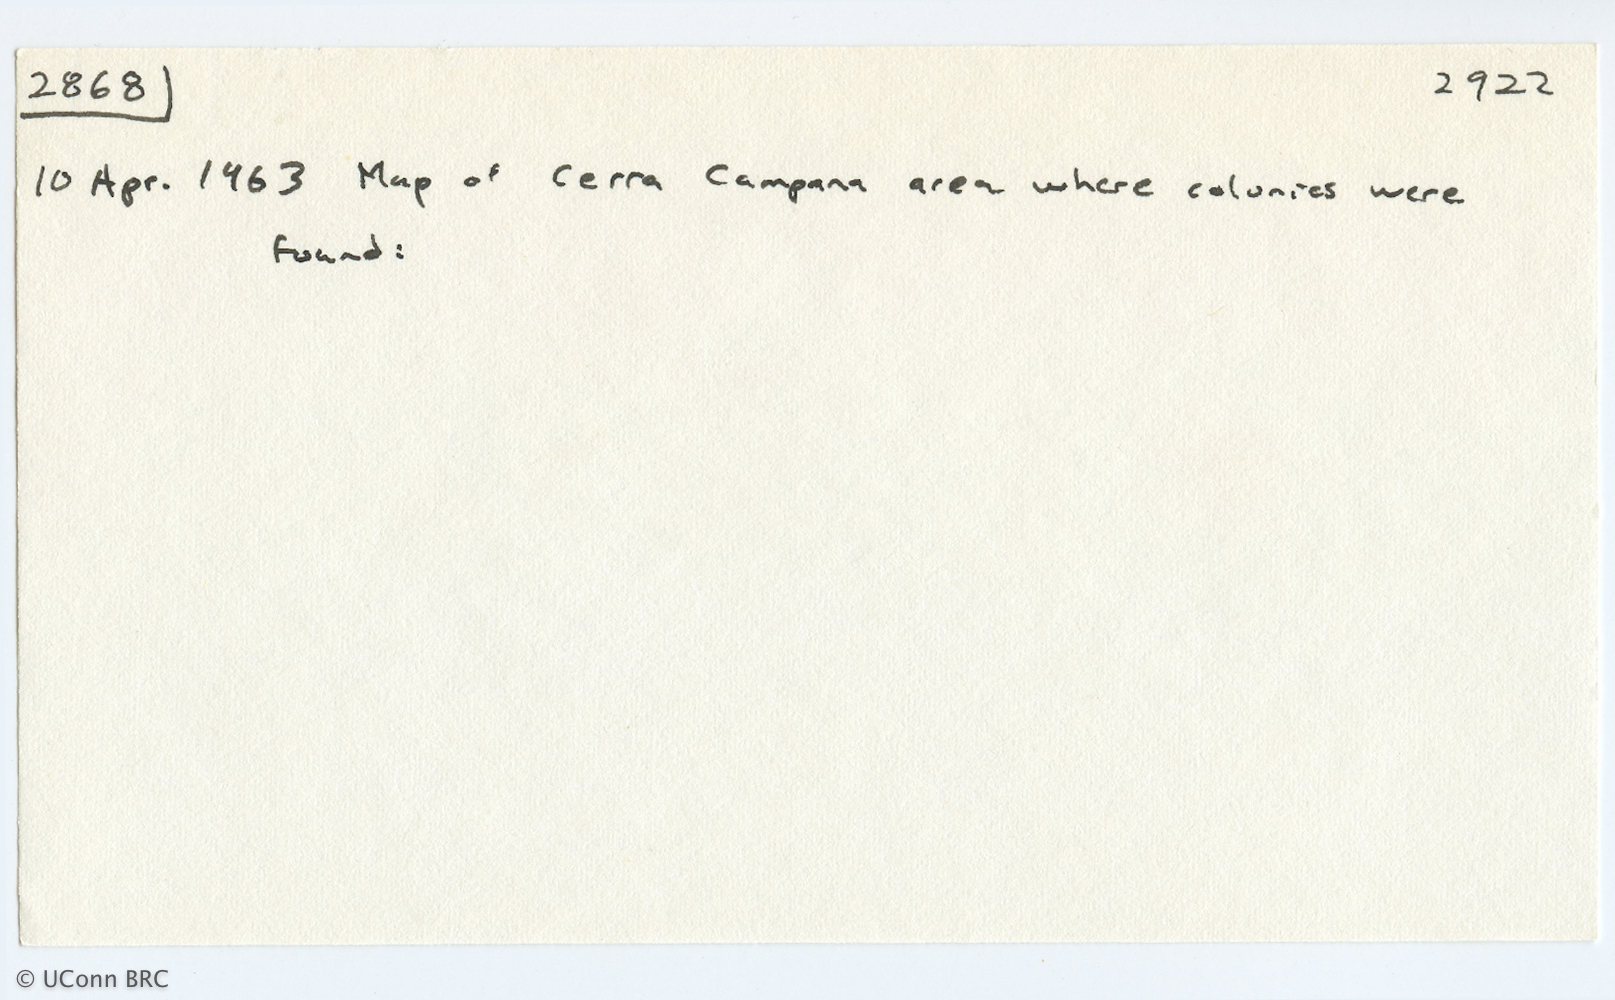 2868 2922
10 Apr. 1963 Map of Cerra Campana area where colonies were
found:
© UConn BRC